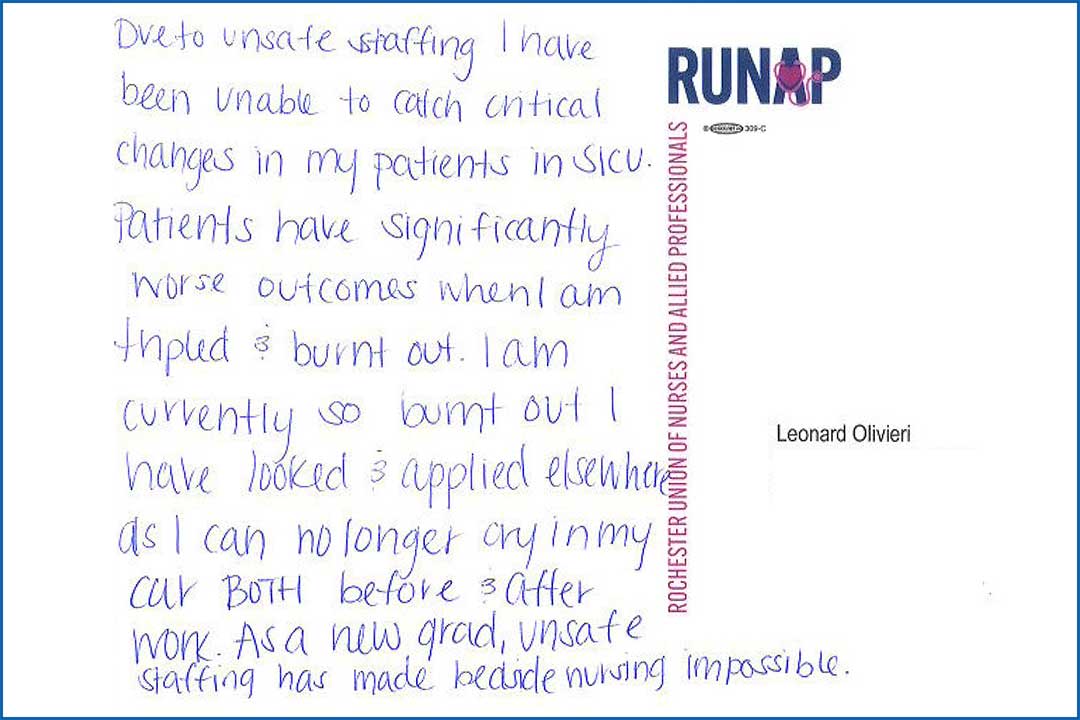 Due to unsafe staffing I have
been unable to catch critical
changes in my patients in SICU.
Patients have significantly
worse outcomes when I am
tripled & burnt out. I am
currently so burnt out I
have looked & applied elsewhere
as I can no longer cry in my
car BOTH before & after
work. As a new grad, unsafe
staffing has made bedside nursing impossible.
RUNAP
309-C
ROCHESTER UNION OF NURSES AND ALLIED PROFESSIONALS
Leonard Olivieri